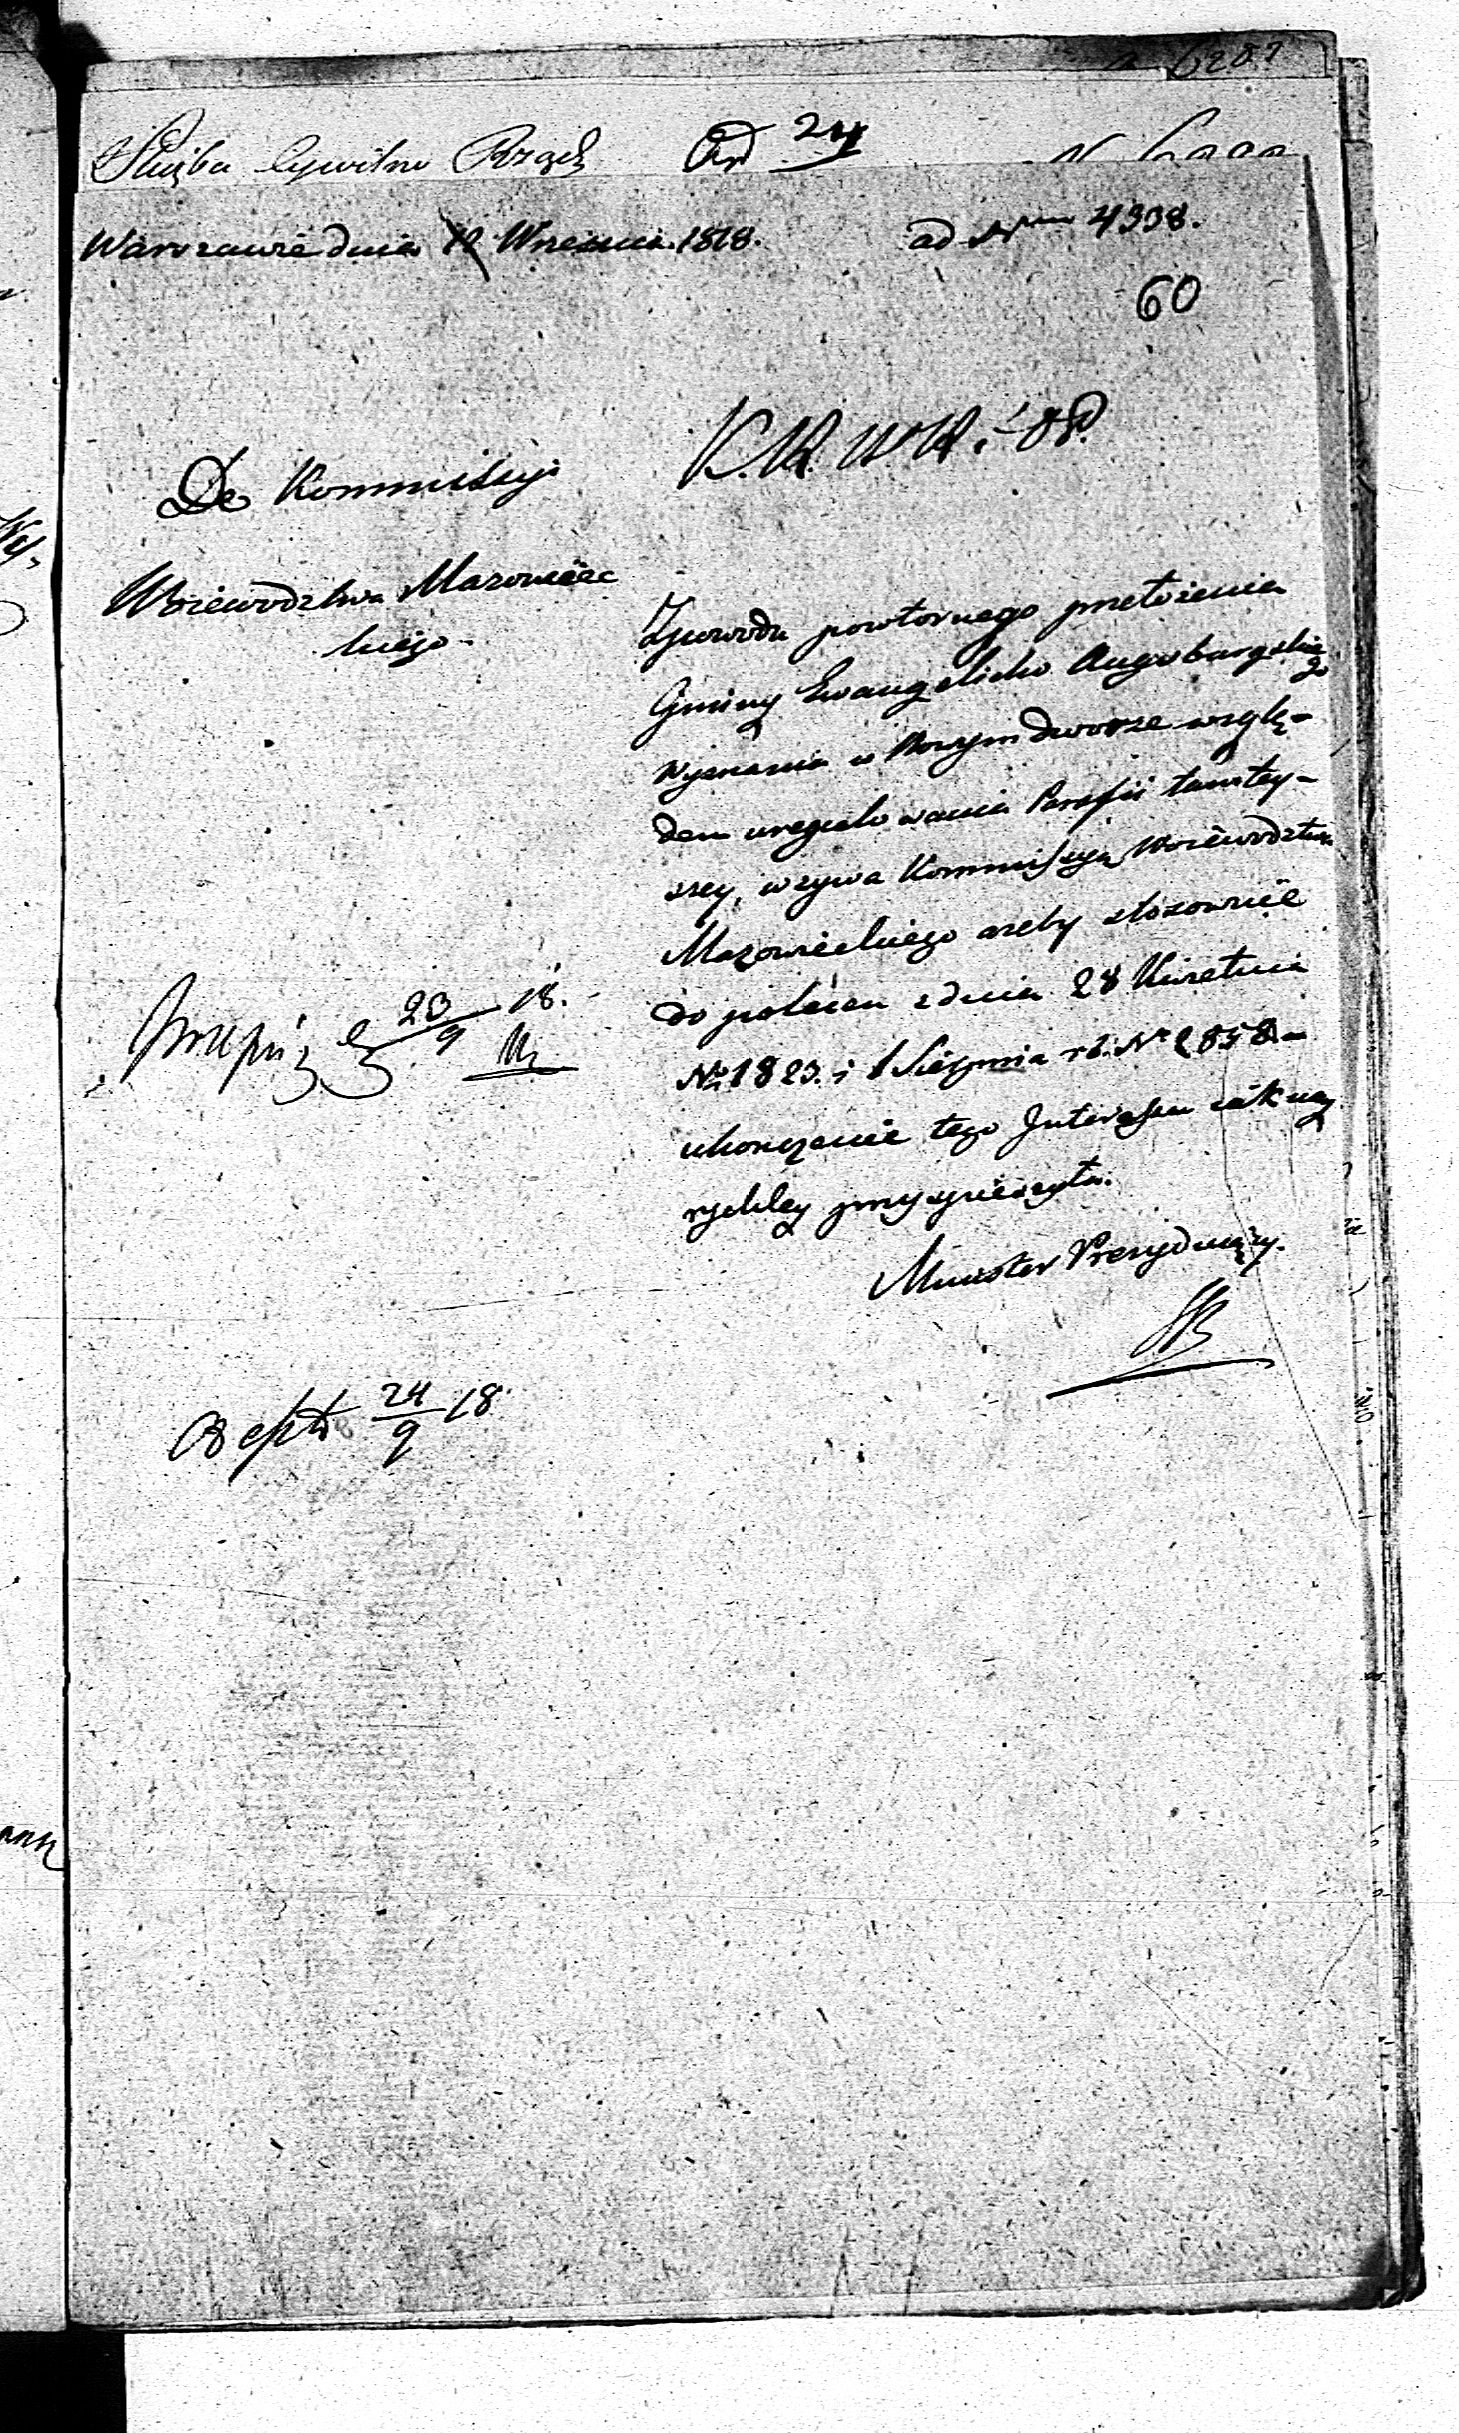 6207
Służba Cywilna Rząd 24
Warszawie dnia 12 Września 1818. ad Nrum 4938.
60
Do Kommissyi
Woiewodztwa Mazowiec
kiego
K. R. W. R. i O. P.
Zpowodu powtornego przełożenia
Gminy Ewangelicko Augsburgskie
go
Wyznania w Nowymdworze wzglę-
dem uregulowania Parafii tamtey-
szey, wzywa Kommissyą Woiewodztwa
Mazowieckiego ażeby stosownie
do poleceń z dnia 28 Kwietnia
No 1823. i 1 Sierpnia r. b. No 2858 -
ukończenie tego Interessu iak nay
rychley przyspieszyła.
Minister Prezyduiący.
23/9 18.
24/9 18